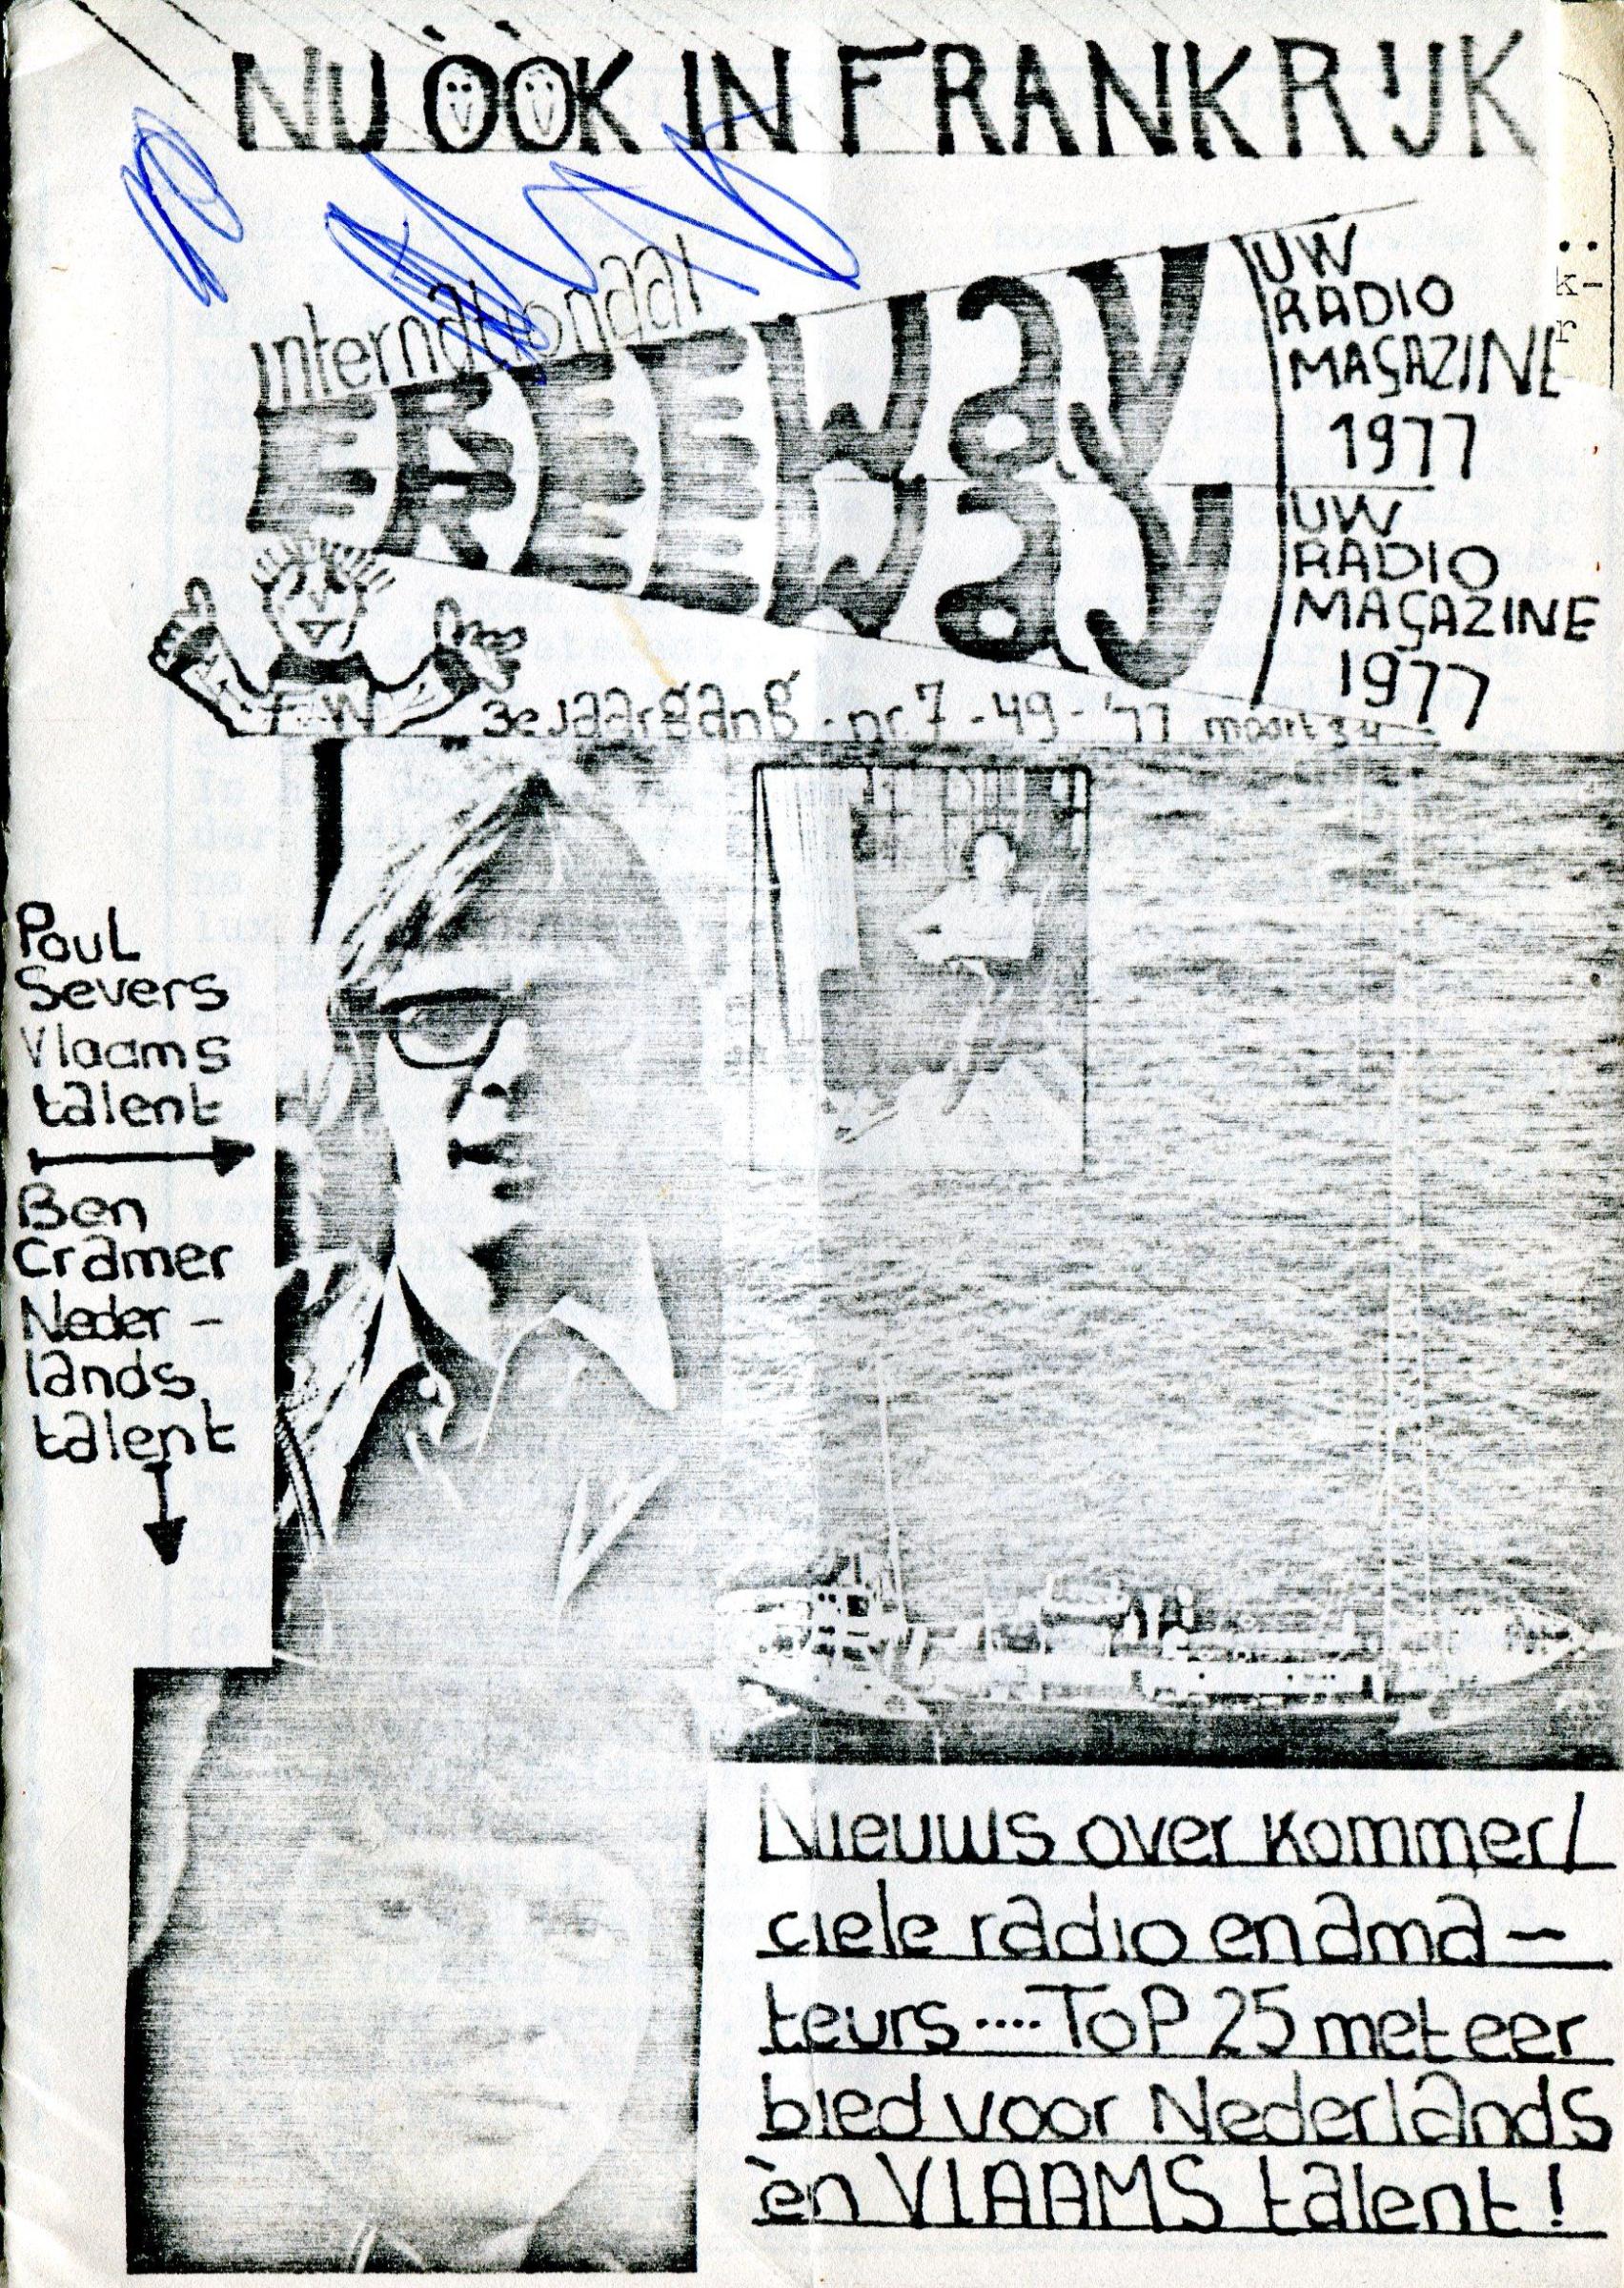 NU ÒÒK IN FRANKRIJK
internationaal
FREEWAY
UW
RADIO
MAGAZINE
1977
UW
RADIO
MAGAZINE
1977
k-
r
FW
3e jaargang - nr. 7 - 49 - '77 maart
Poul
Severs
Vlaams
talent
Ben
Cramer
Neder -
lands
talent
Nieuws over kommer/
ciele radio en ama -
teurs .... ToP 25 met eer
bied voor Nederlands
èn VLAAMS talent !